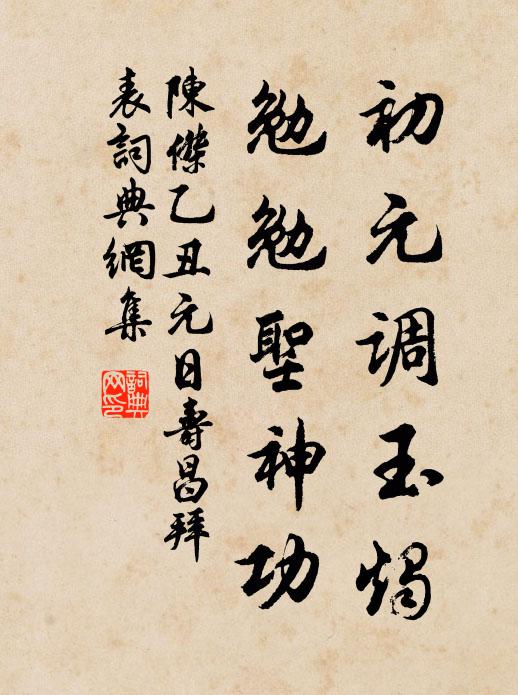 初元调玉燭
勉勉聖神功
陳傑乙丑元日壽昌拜
表詞典網集
詞典
网印